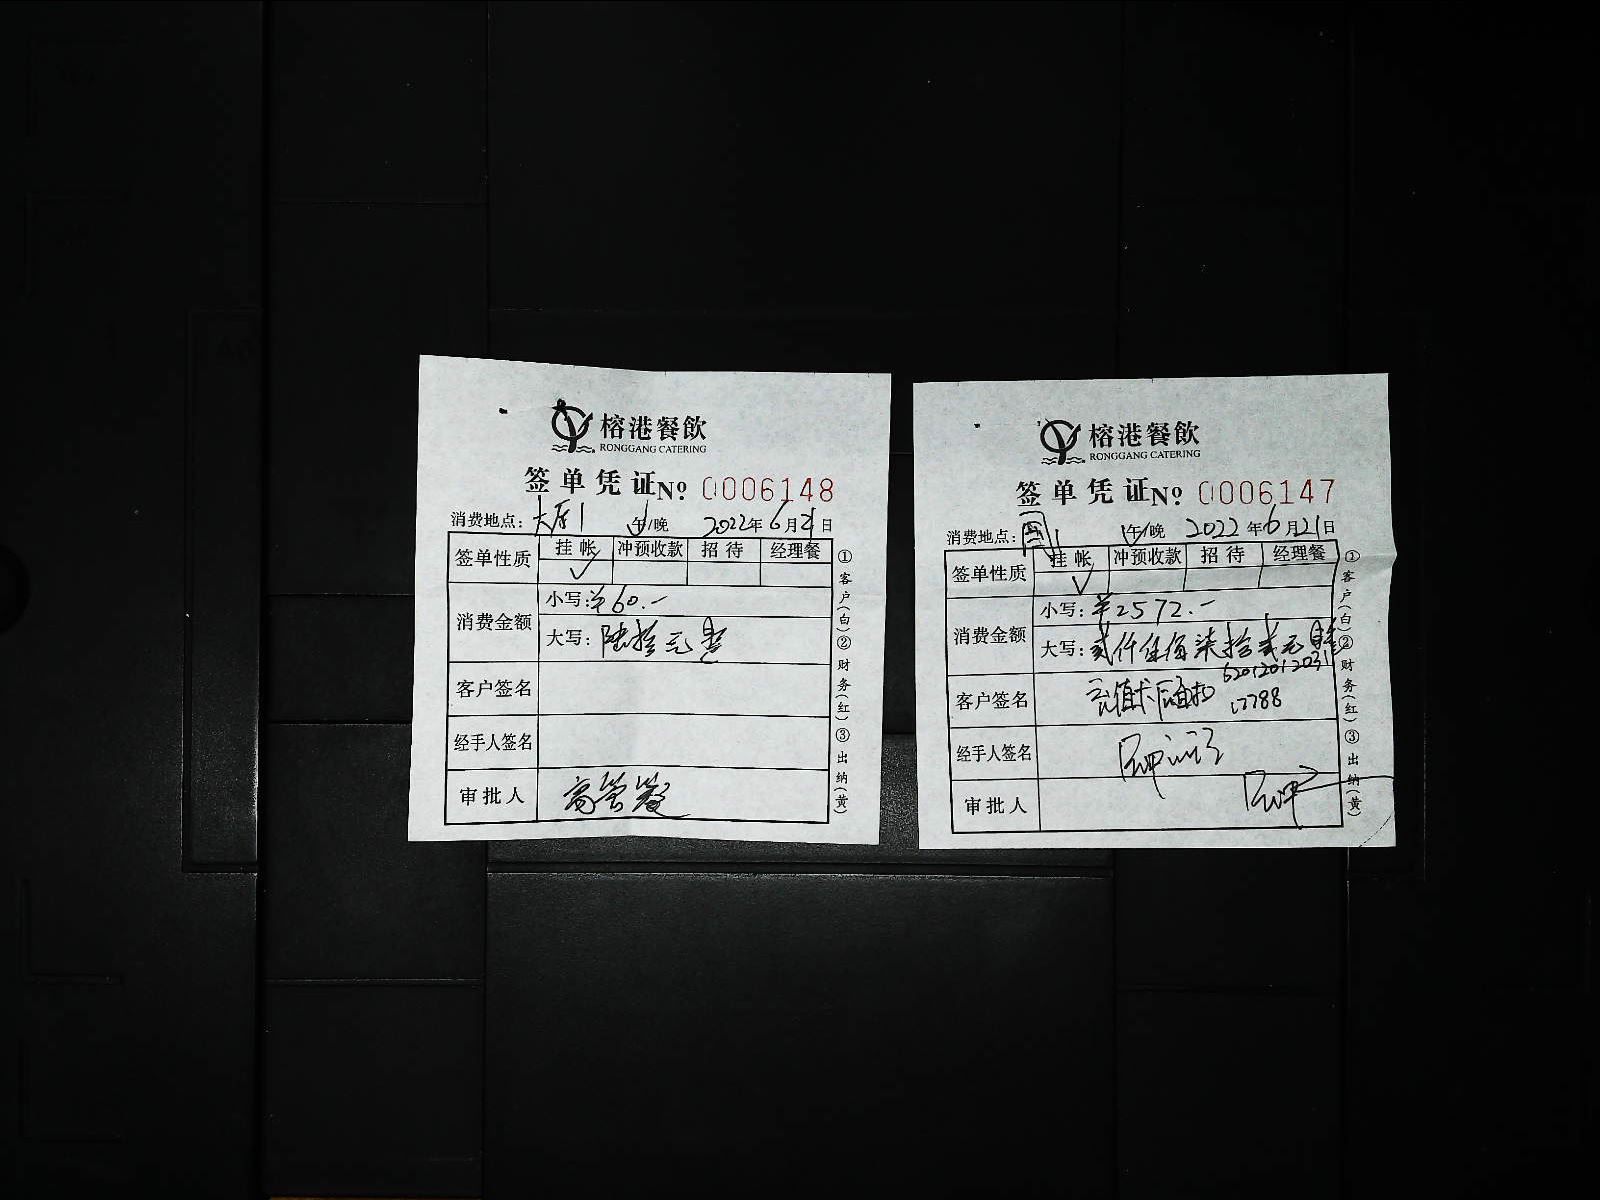 榕港餐飲
RONGGANG CATERING
签单凭证 No 0006148
消费地点: 大厅1 午/晚 2022年6月21日
签单性质 挂帐 冲预收款 招待 经理餐
✓
消费金额 小写: ¥60.-
大写: 陆拾元整
客户签名
经手人签名
审批人 高管餐
①客户(白)②财务(红)③出纳(黄)
榕港餐飲
RONGGANG CATERING
签单凭证 No 0006147
消费地点: 午/晚 2022年6月21日
签单性质 挂帐 冲预收款 招待 经理餐
✓
消费金额 小写: ¥2572.-
大写: 贰仟伍佰柒拾贰元整
62012012031
客户签名 充值卡 17788
经手人签名
审批人
①客户(白)②财务(红)③出纳(黄)